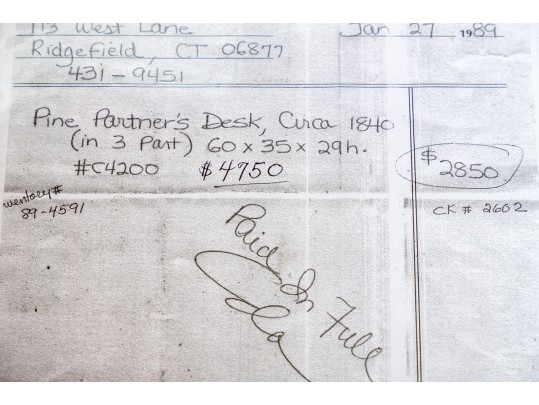 113 West Lane
Jan 27 1989
Ridgefield, CT 06877
431-9451
Pine Partner's Desk, Circa 1840
(in 3 Part) 60 x 35 x 29h.
#C4200 $4750
$2850
Inventory#
89-4591
CK # 2602
Paid In Full